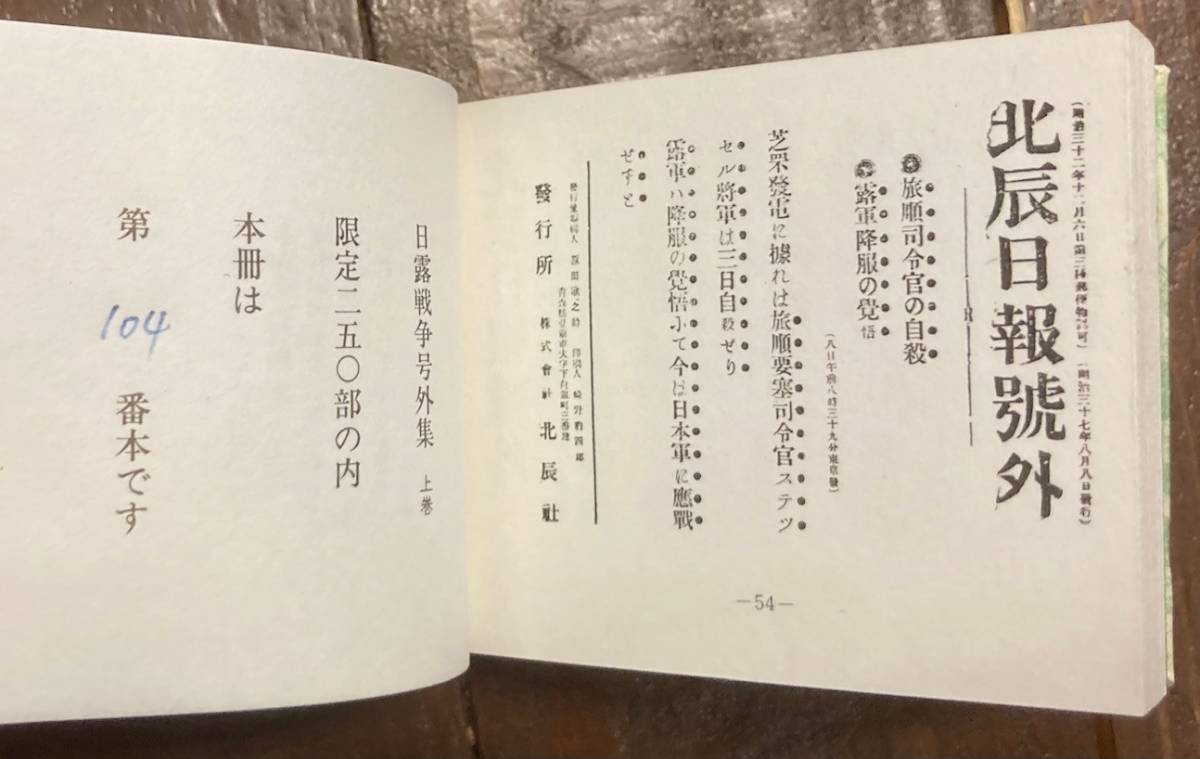 (明治三十二年十二月六日第三種郵便物認可)(明治三十七年八月八日發行)
北辰日報號外
旅順司令官の自殺
露軍降服の覺悟
(八日午前八時三十九分東京發)
芝罘發電に據れは旅順要塞司令官ステツ
セル將軍は三日自殺せり
露軍ハ降服の覺悟にて今は日本軍に應戰
ぜずと
發行兼編輯人
印刷人
發行所 株式會社 北辰社
—54—
日露戦争号外集 上巻
限定二五〇部の内
本冊は
第 104 番本です